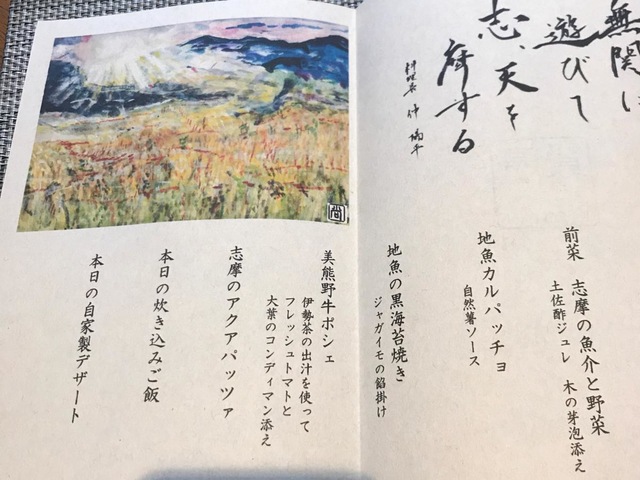 遊びて
志、天を
摩する
料理長
前菜 志摩の魚介と野菜
土佐酢ジュレ 木の芽泡添え
地魚カルパッチョ
自然薯ソース
地魚の黒海苔焼き
ジャガイモの餡掛け
美熊野牛ポシェ
伊勢茶の出汁を使って
フレッシュトマトと
大葉のコンディマン添え
志摩のアクアパッツァ
本日の炊き込みご飯
本日の自家製デザート
尚